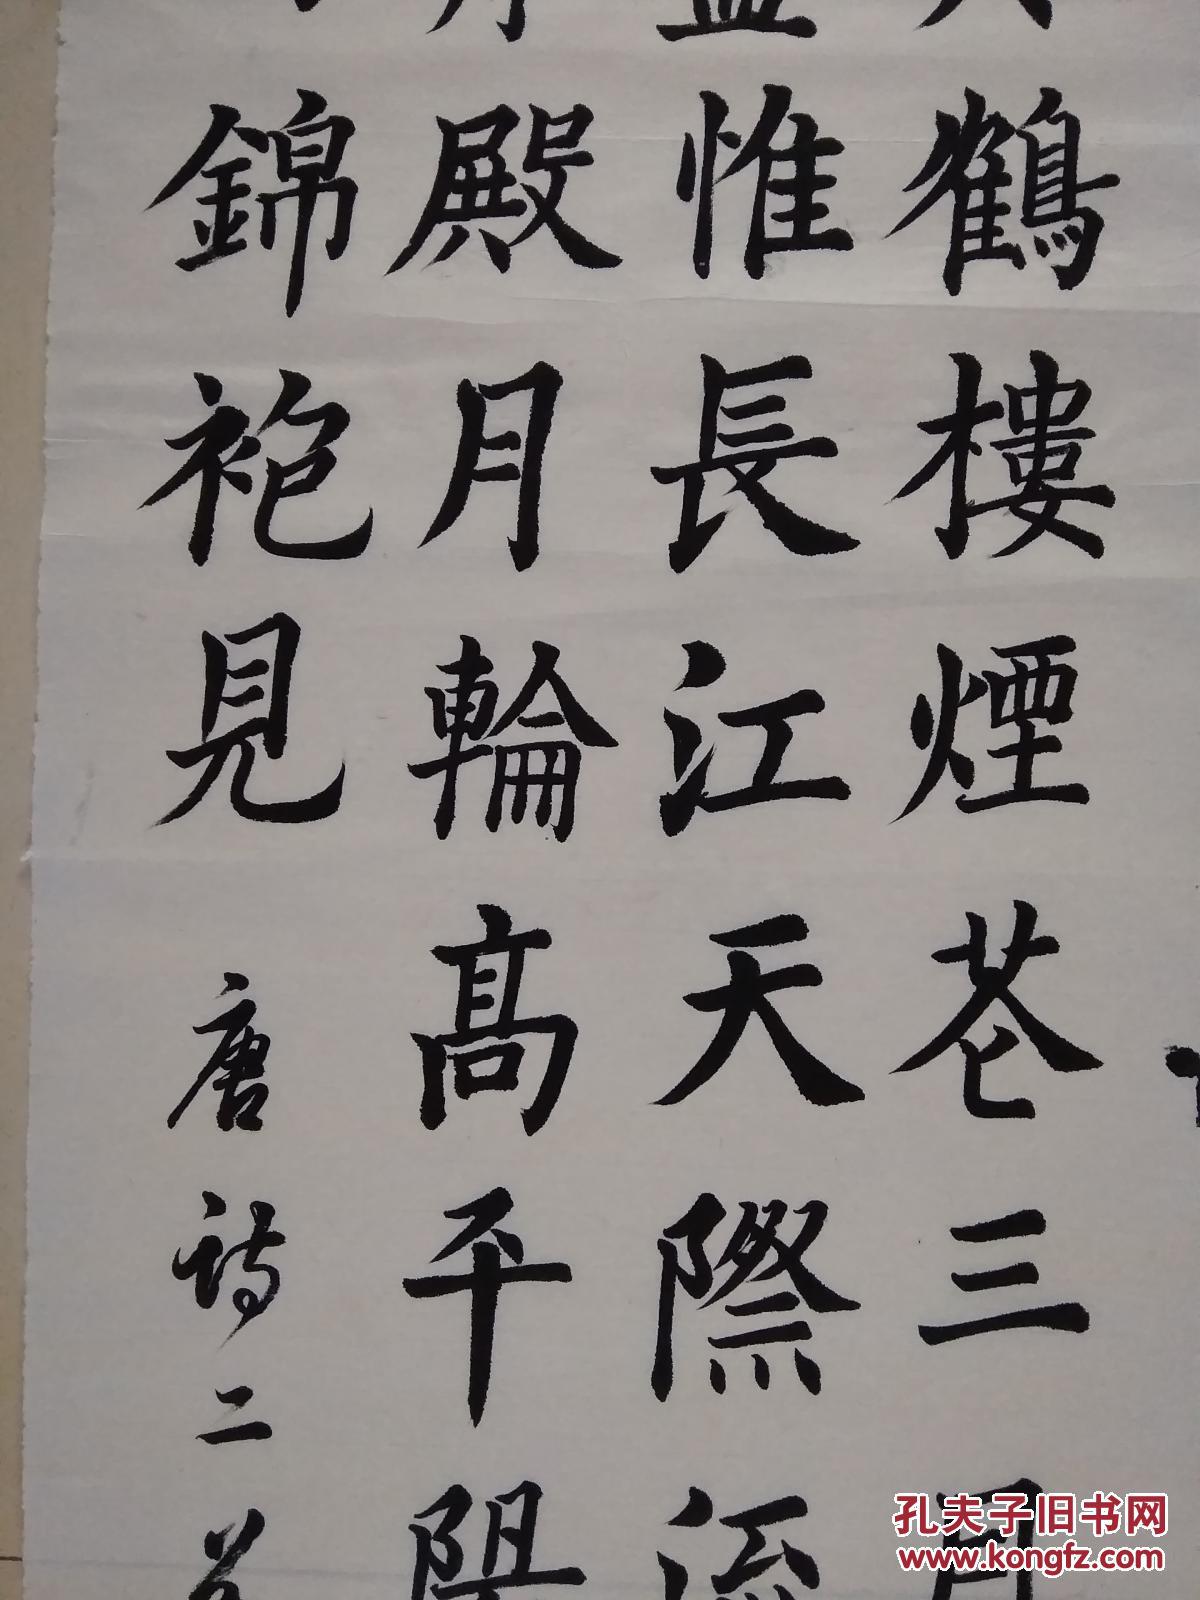 鶴樓煙花三月
惟長江天際流
殿月輪高平陽
錦袍見 唐詩二首
孔夫子旧书网
www.kongfz.com